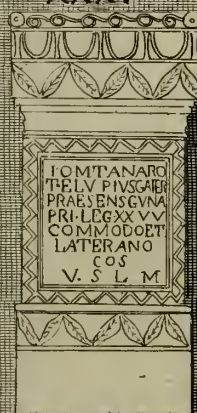 IOMTANARO
TELV PIVSGATER
PRAESENSGVNA
PRI·LEGXXVV
COMMODOET
LATERANO
COS
V. S L M